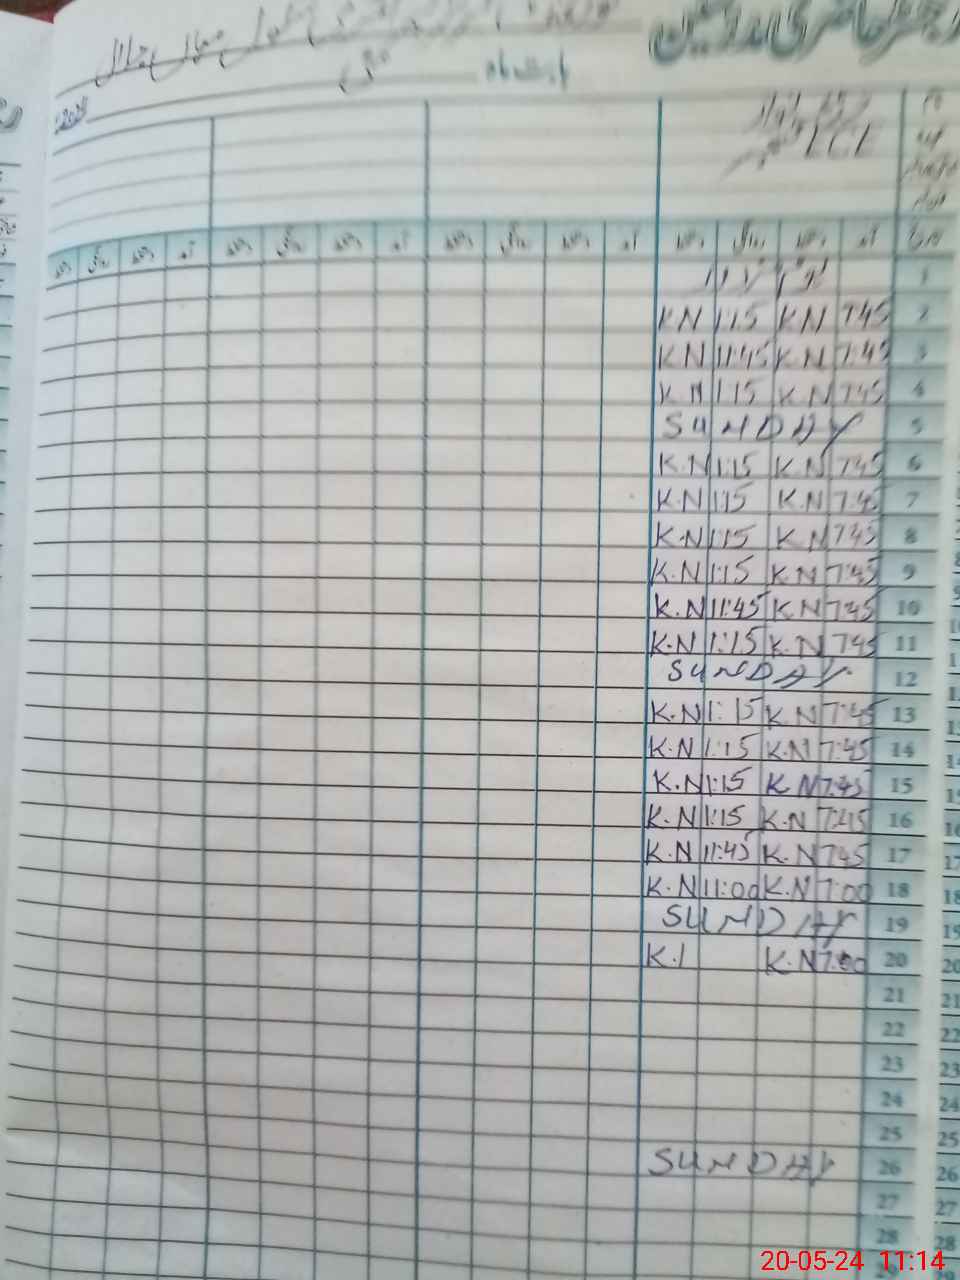 رجسٹر حاضری مدرسین
بابت ماہ مئی
2024
نام
عہدہ
LCL
تاریخ آمد دستخط روانگی دستخط آمد دستخط روانگی دستخط آمد دستخط روانگی دستخط
1
2 7:45 K.N 1:15 K.N
3 7:45 K.N 11:45 K.N
4 7:45 K.N 1:15 K.N
5 SUNDAY
6 7:45 K.N 1:15 K.N
7 7:45 K.N 1:15 K.N
8 7:45 K.N 1:15 K.N
9 7:45 K.N 1:15 K.N
10 7:45 K.N 11:45 K.N
11 7:45 K.N 1:15 K.N
12 SUNDAY
13 7:45 K.N 1:15 K.N
14 7:45 K.N 1:15 K.N
15 7:45 K.N 1:15 K.N
16 7:45 K.N 1:15 K.N
17 7:45 K.N 11:45 K.N
18 7:00 K.N 11:00 K.N
19 SUNDAY
20 7:00 K.N K.
21
22
23
24
25
26 SUNDAY
27
28
20-05-24 11:14